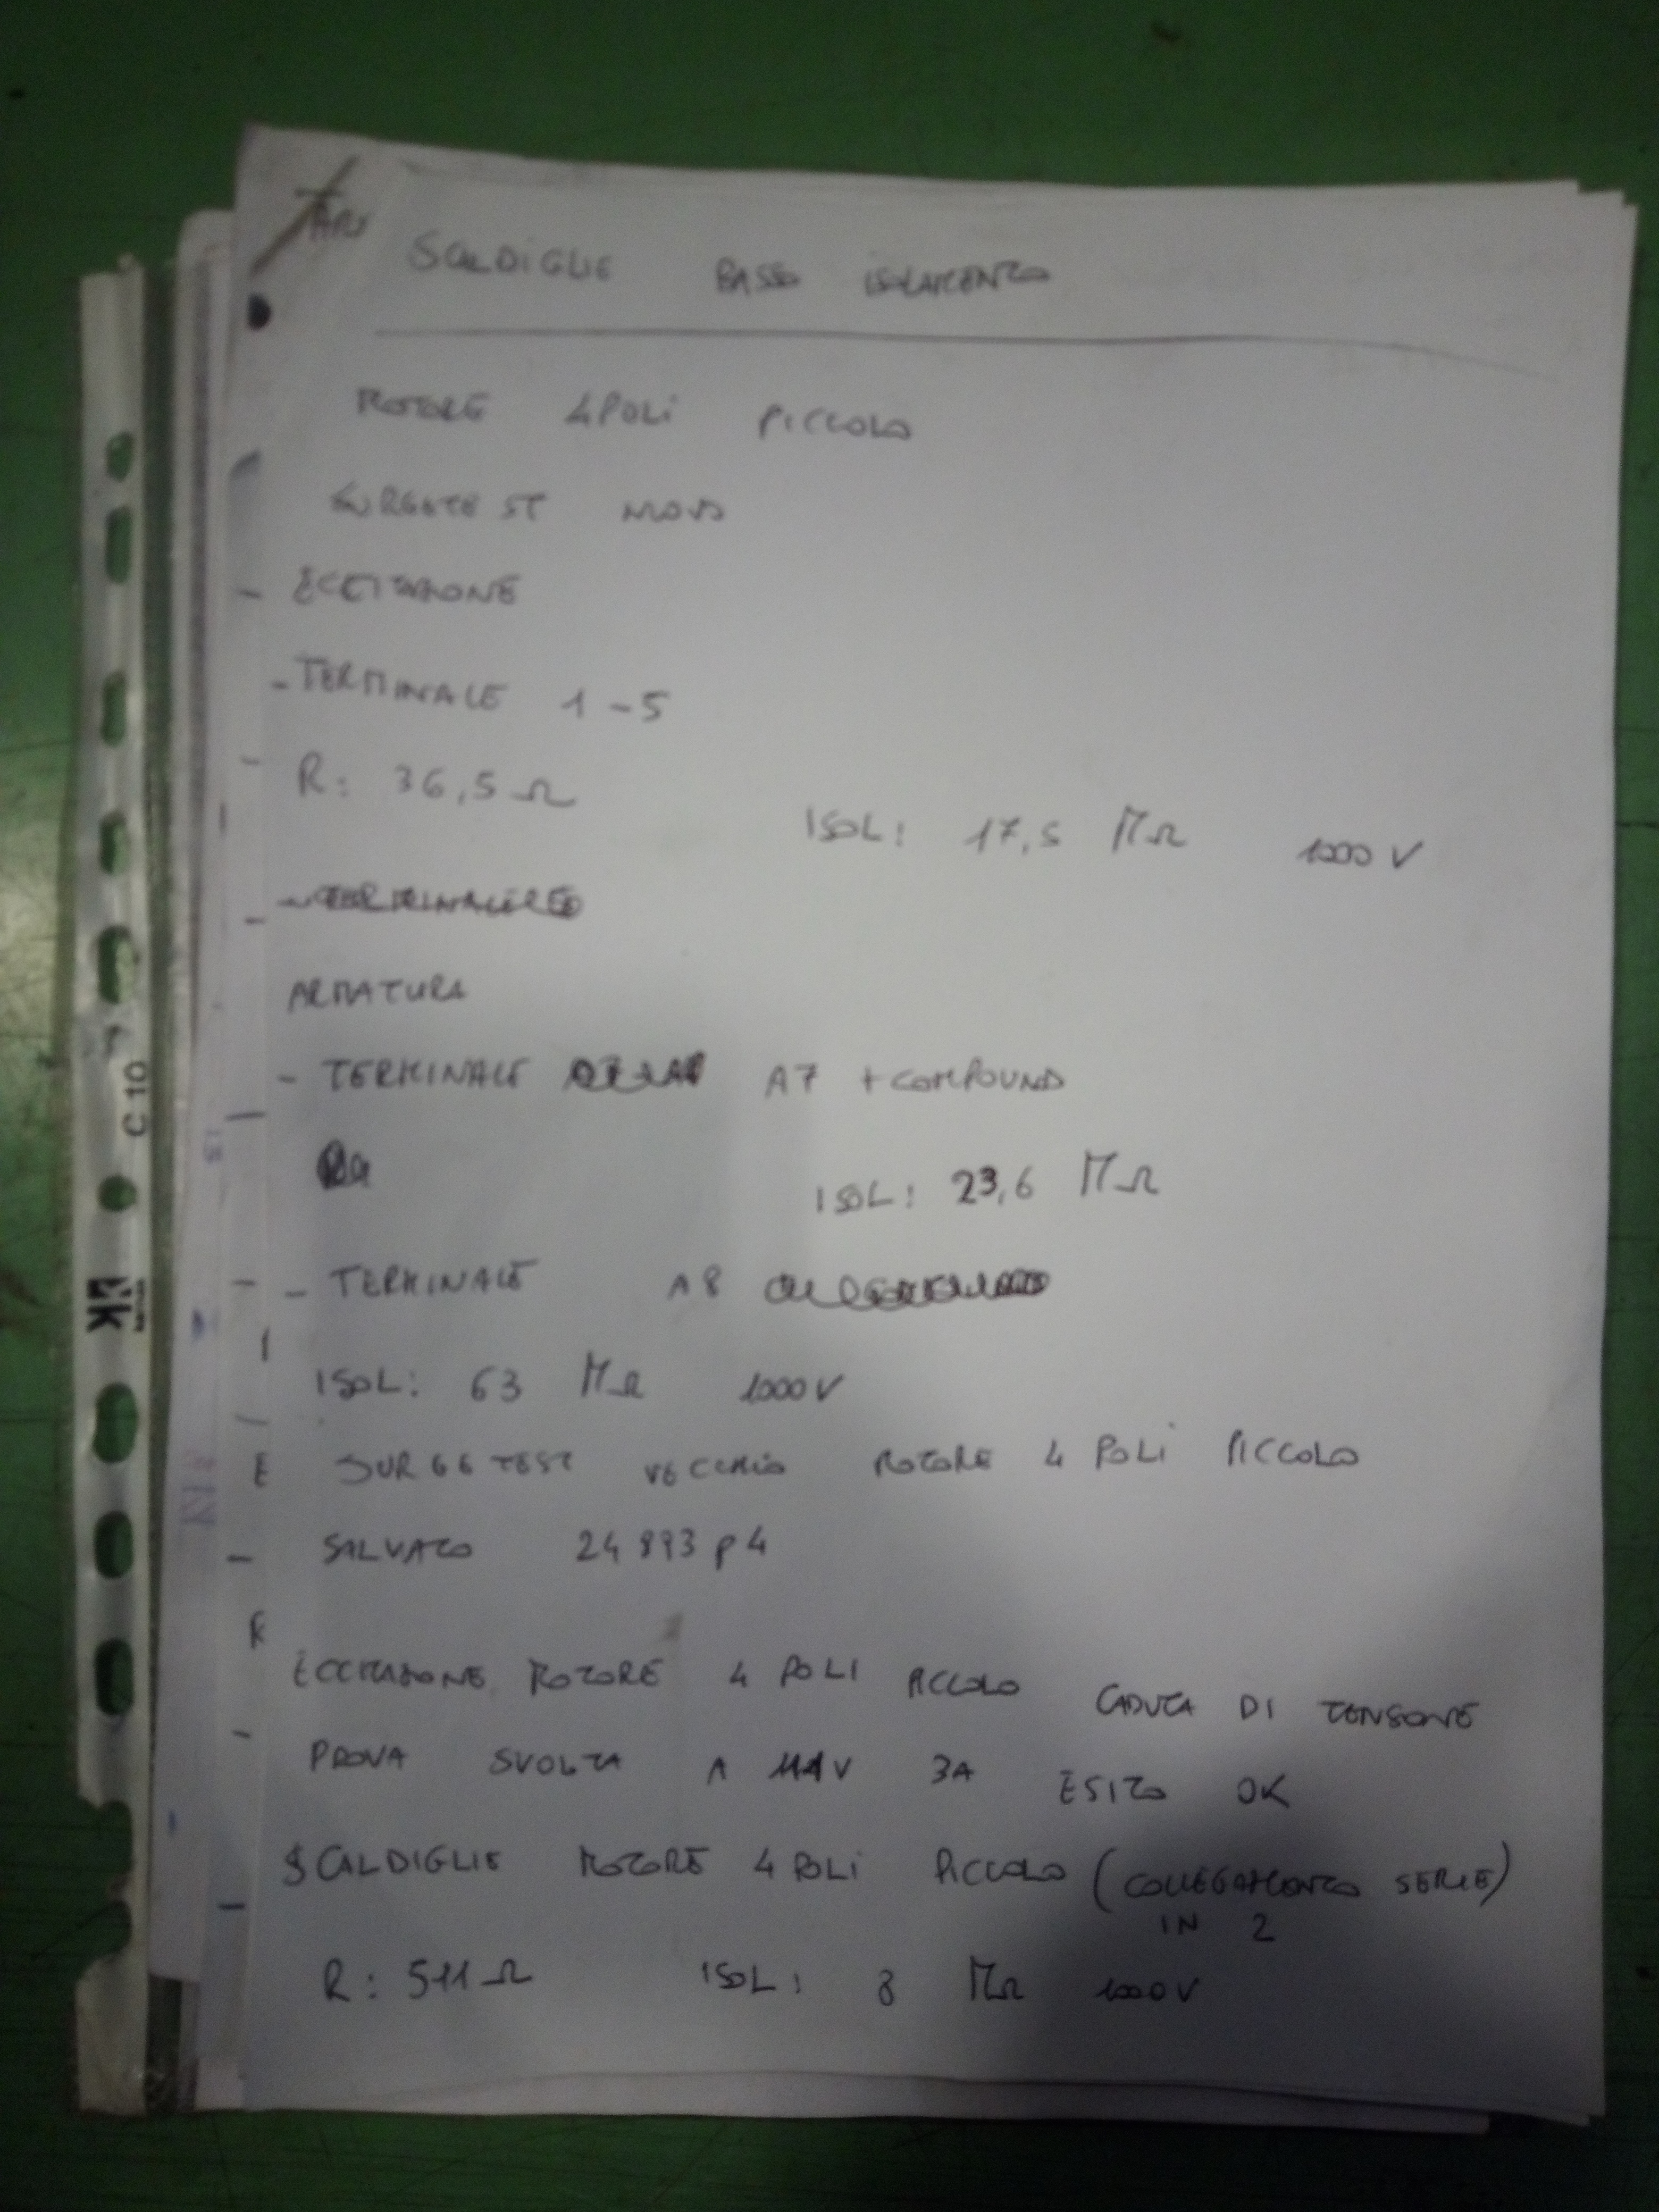 SCALDIGLIE BASSO ISOLAMENTO
MOTORE 4 POLI PICCOLO
NUOVO
ECCITAZIONE
- TERMINALE 1-5
R: 36,5 Ω
ISOL: 17,5 MΩ 1000 V
ARMATURA
- TERMINALE A7 + COMPOUND
ISOL: 23,6 MΩ
- TERMINALE A8
ISOL: 63 MΩ 1000V
SURGE TEST VECCHIO MOTORE 4 POLI PICCOLO
SALVATO 24893 p4
ECCITAZIONE MOTORE 4 POLI PICCOLO CADUTA DI TENSIONE
PROVA SVOLTA A 111V 3A ESITO OK
SCALDIGLIE MOTORE 4 POLI PICCOLO (COLLEGAMENTO SERIE)
IN 2
R: 511 Ω ISOL: 8 MΩ 1000V
C 10